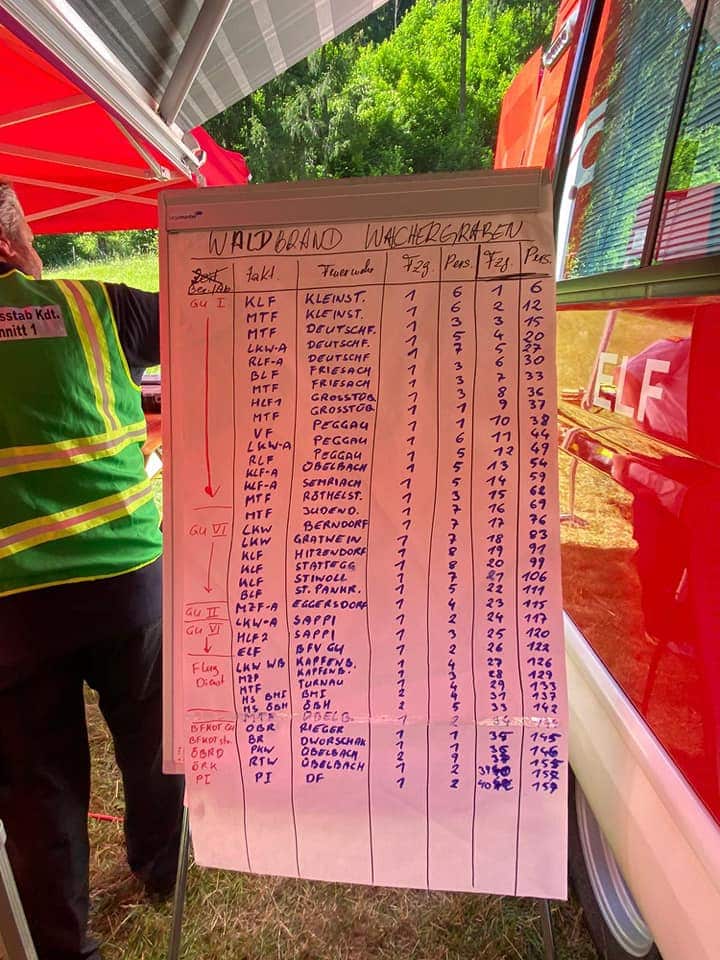 sstab Kdt.
nnitt 1
legamaster
ELF
WALDBRAND WACHERGRABEN
Takt. Feuerwehr Fzg. Pers. Fzg. Pers.
GU I KLF KLEINST. 1 6 1 6
MTF KLEINST. 1 6 2 12
MTF DEUTSCHF. 1 3 3 15
LKW-A DEUTSCHF. 1 5 4 20
RLF-A DEUTSCHF 1 7 5 27
BLF FRIESACH 1 3 6 30
MTF FRIESACH 1 3 7 33
HLF1 GROSSTÜB. 1 3 8 36
MTF GROSSTÜB. 1 1 9 37
VF PEGGAU 1 1 10 38
LKW-A PEGGAU 1 6 11 44
RLF PEGGAU 1 5 12 49
KLF-A ÖBELBACH 1 5 13 54
KLF-A SEMRIACH 1 5 14 59
MTF RÖTHELST. 1 3 15 62
MTF JUDEND. 1 7 16 69
GU VI LKW BERNDORF 1 7 17 76
LKW GRATWEIN 1 7 18 83
KLF HITZENDORF 1 8 19 91
KLF STATTEGG 1 8 20 99
KLF STIWOLL 1 7 21 106
BLF ST. PANKR. 1 5 22 111
GU II MZF-A EGGERSDORF 1 4 23 115
GU VI LKW-A SAPPI 1 2 24 117
HLF2 SAPPI 1 3 25 120
ELF BFV GU 1 2 26 122
Flug Dienst LKW WB KAPFENB. 1 4 27 126
KAPFENB. 1 3 28 129
MTF TURNAU 1 4 29 133
HS BMI BMI 2 4 31 137
HS ÖBH ÖBH 2 5 33 142
MTF ÖBELB. 1 2
BFKDT GU OBR RIEGER 1 1 35 145
BR DWORSCHAK 1 1 146
ÖBRD PKW ÜBELBACH 2 9 155
ÖRK RTW ÜBELBACH 1 2 39 157
PI PI DF 1 2 40 159